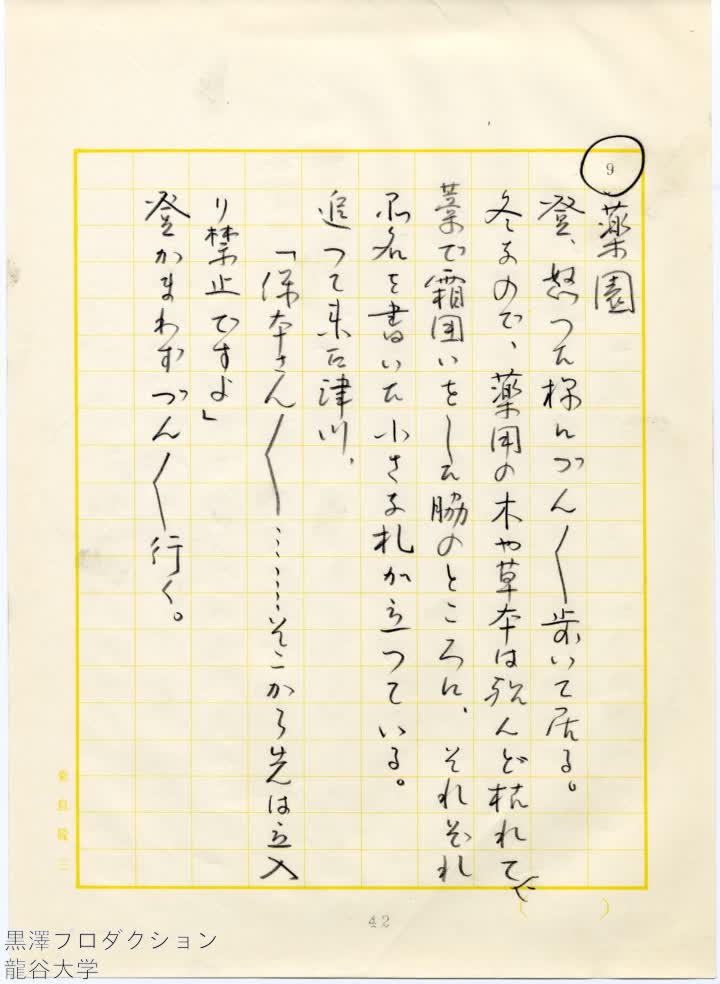 9
薬園
登、怒つた様にづん〳〵歩いて居る。
冬なので、薬用の木や草本は殆んど枯れて
藁で霜囲いをした脇のところに、それぞれ
品名を書いた小さな札が立つている。
追つて来た津川、
「保本さん〳〵……そこから先は立入
り禁止ですよ」
登かまわずづん〳〵行く。
42
黒澤プロダクション
龍谷大学